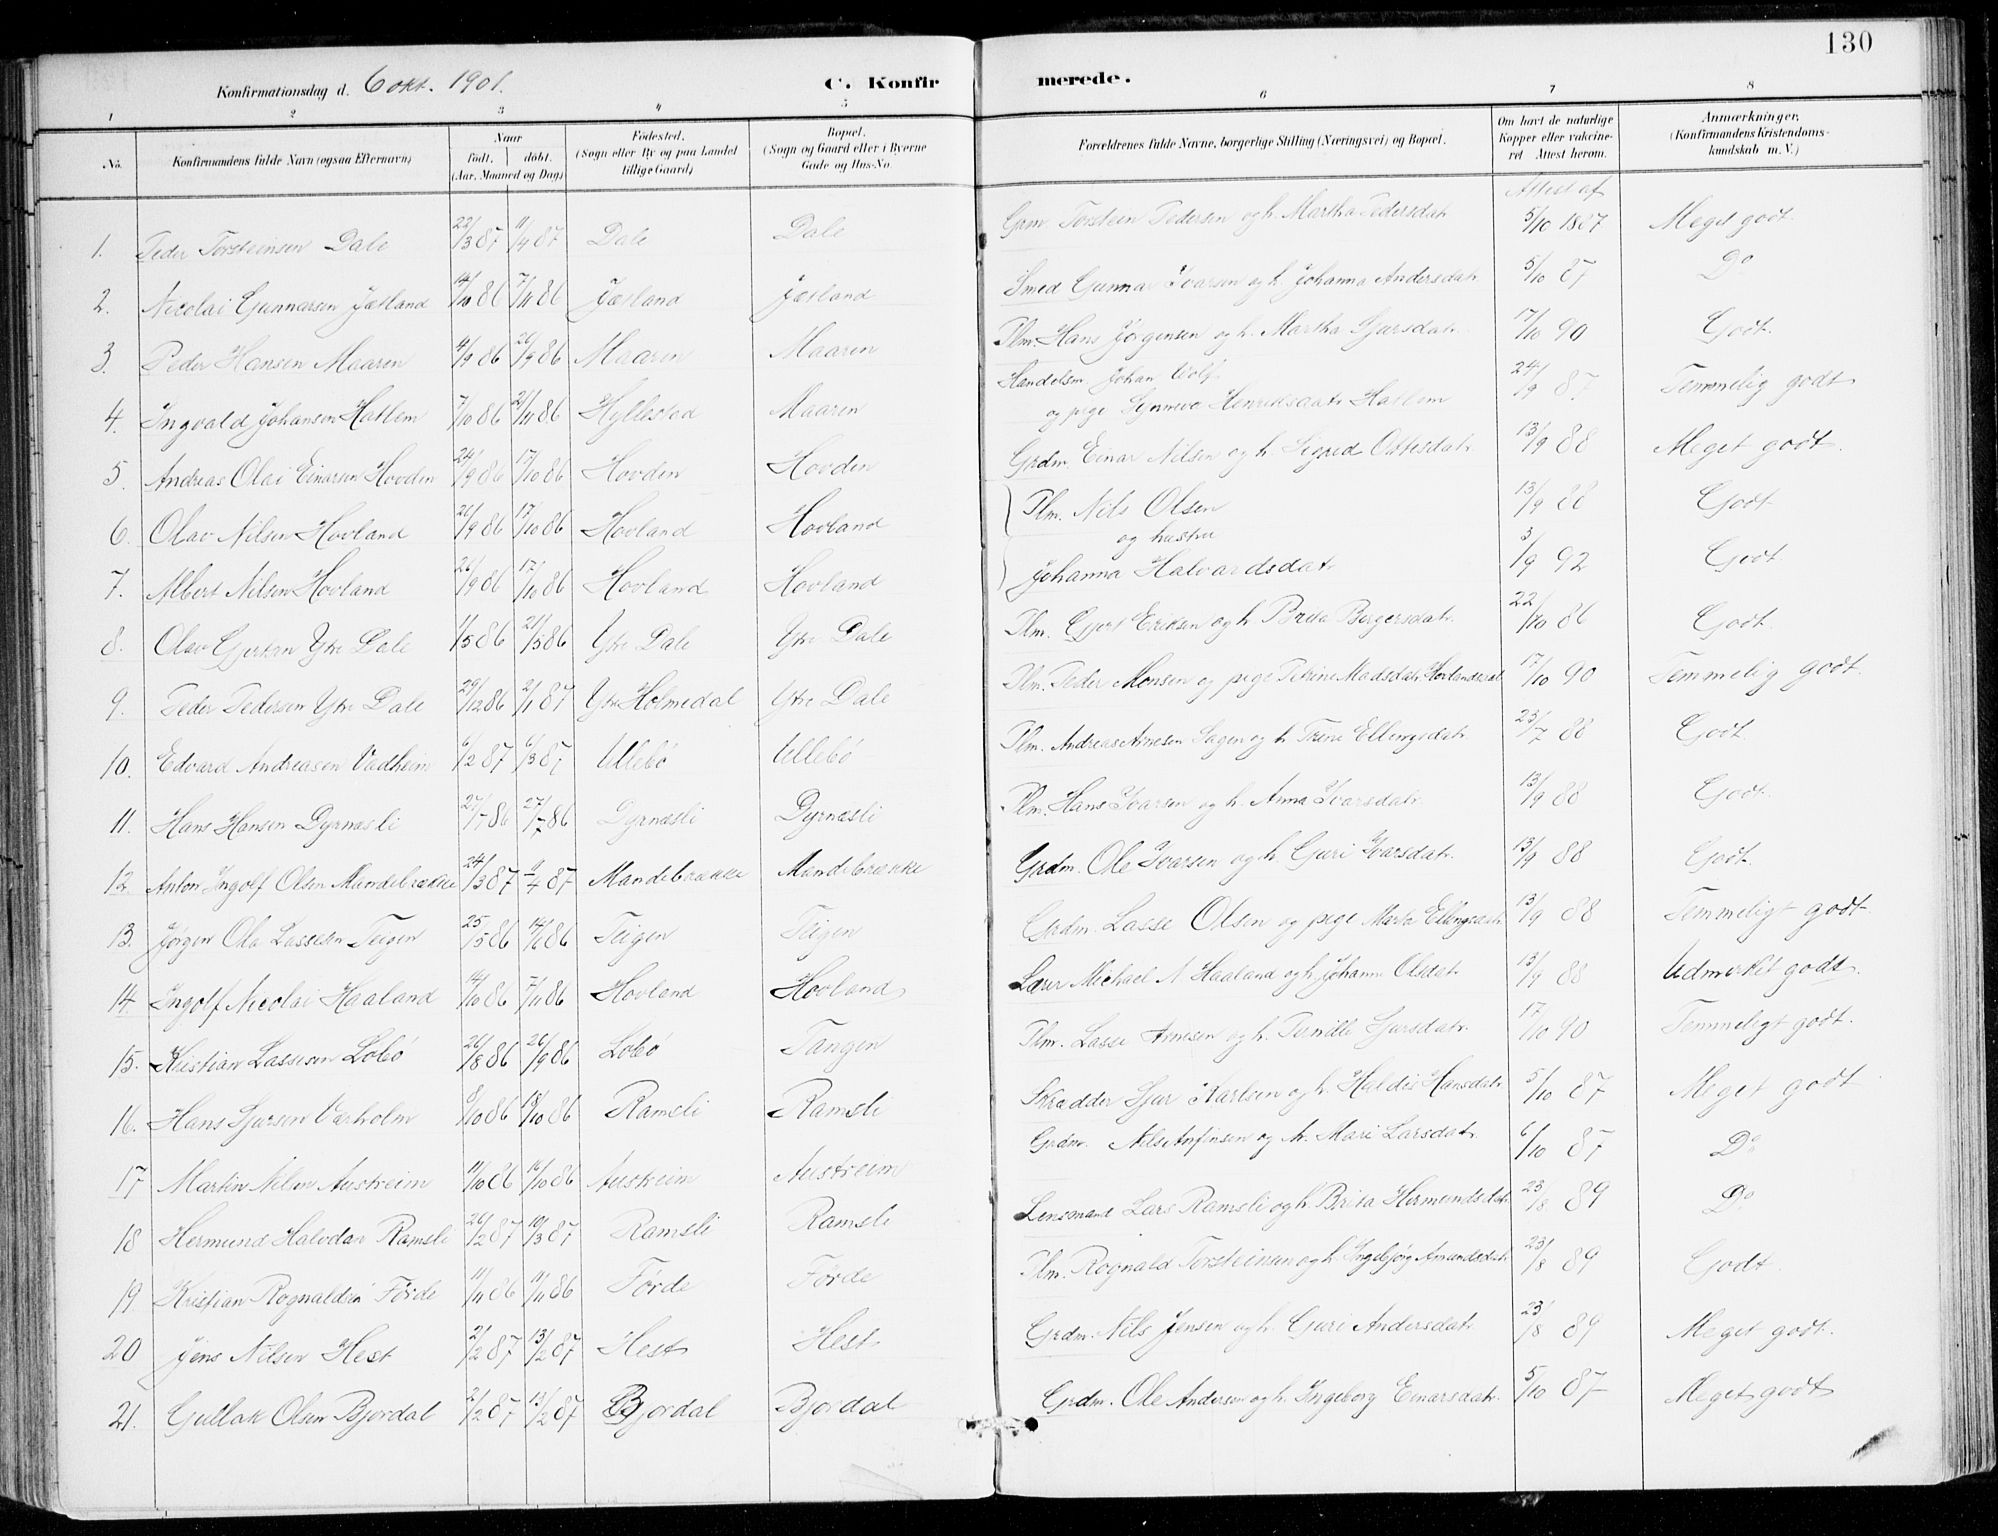 130
Konfirmationsdag d. 6 okt. 1901.
C. Konfirmerede.
1 2 3 4 5 6 7 8
No.
Konfirmandens fulde Navn (ogsaa Efternavn)
Naar født. døbt. (Aar, Maaned og Dag)
Fødested. (Sogn eller By og paa Landet tillige Gaard)
Bopæl. (Sogn og Gaard eller i Byerne Gade og Hus-No.
Forældrenes fulde Navne, borgerlige Stilling (Næringsvei) og Bopæl.
Om havt de naturlige Kopper eller vakcineret Attest herom.
Anmærkninger, (Konfirmandens Kristendomskundskab m. V.)
Attest af
1. Peder Torsteinsen Dale 22/3 87 11/4 87 Dale Dale Grm Torstein Pedersen og h. Martha Pedersdatr 5/10 1887 Meget godt.
2. Nicolai Gunnarsen Jetland 14/10 86 7/11 86 Jetland Jetland Smed Gunnar Ivarsen og h. Johanna Andersdatr 5/10 87 Do
3. Peder Hansen Maaren 4/9 86 26/9 86 Maaren Maaren Plm. Hans Jørgensen og h. Martha Sjursdatr 17/10 90 Godt.
4. Ingvald Johansen Hatlem 7/10 86 21/11 86 Hyllestad Maaren Handelsm. Johan
og pige Synneve Henriksdatr Hatlem 24/9 87 Temmelig godt
5. Andreas Olai Einarsen Hovden 24/9 86 17/10 86 Hovden Hovden Grdm. Einar Nilsen og h. Sigrid 13/9 88 Meget godt.
6. Olav Nilsen Hovland 26/9 86 17/10 86 Hovland Hovland Plm. Nils Olsen 13/9 88 Godt
og hustru
7. Albert Nilsen Hovland 26/9 86 17/10 86 Hovland Hovland Johanna Halvardsdatr 3/9 92 Godt
8. Olav Gjertsen Ytre Dale 1/5 86 21/5 86 Ytre Dale Ytre Dale Plm. Gjert Eriksen og h. Brita Børgersdatr. 22/10 86 Godt.
9. Peder Pedersen Ytre Dale 29/12 86 2/1 87 Ytre Holmedal Ytre Dale Plm. Peder Monsen og pige Petrine Madsdatr 17/10 90 Temmelig godt.
10. Edvard Andreasen Vadheim 6/2 87 6/3 87 Ullebø Ullebø Plm. Andreas Arnesen Hagen og h. Trine Ellingsdatr. 23/7 88 Godt.
11. Hans Hansen Dyrnæsli 27/7 86 27/7 86 Dyrnæsli Dyrnæsli Plm. Hans Ivarsen og h. Anna Ivarsdatr. 13/9 88 Godt.
12. Anton Ingolf Olsen Mundebrække 24/3 87 11/4 87 Mandebrække Mundebrække Grdm. Ole Ivarsen og h. Guri Ivarsdatr. 13/9 88 Godt.
13. Jørgen Ola Lassesen Teigen 25/5 86 14/6 86 Teigen Teigen Grdm. Lasse Olsen og pige Marta Ellingsdatr 13/9 88 Temmeligt godt
14. Ingolf Nicolai Haaland 14/10 86 7/11 86 Hovland Hovland Lærer Michael N Haaland og h. Johanne Olsdatr 13/9 88 Udmerket godt.
15. Kristian Lassesen Lobø 26/8 86 26/9 86 Lobø Tangen Plm. Lasse Arnesen og h. Pernille Sjursdatr. 17/10 90 Temmeligt godt.
16. Hans Sjursen Værholm 8/10 86 18/10 86 Ramsli Ramsli Skrædder Sjur Karlsen og h. Haldis Hansdatr 5/10 87 Meget godt
17 Martin Nilsen Austreim 11/10 86 14/10 86 Austreim Austreim Grdm. Nils Anfinsen og h. Mari Larsdatr. 6/10 87 Do
18 Hermund Halvdan Ramsli 26/2 87 10/3 87 Ramsli Ramsli Lensmand Lars Ramsli og h. Brita Hermundsdatr. 23/8 89 Do
19 Kristian Rognaldsen Førde 11/11 86 11/11 86 Førde Førde Plm. Rognald Torsteinsen og h. Ingebjørg Amundsdatr 23/8 89 Godt.
20 Jens Nilsen Hest 2/2 87 13/2 87 Hest Hest Grdm. Nils Jensen og h. Guri Andersdatr. 23/8 89 Meget godt.
21. Gullak Olsen Bjordal 2/2 87 13/2 87 Bjordal Bjordal Grdm. Ole Andersen og h. Ingeborg Einarsdatr. 5/10 87 Meget godt